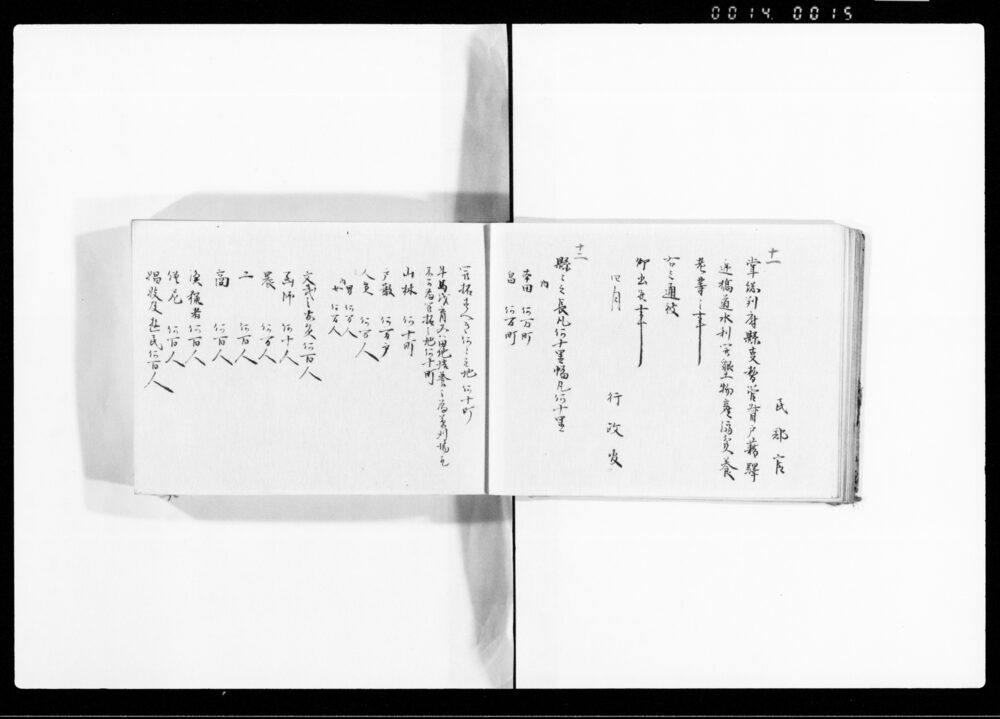 0014 0015
十一
民部官
掌総判府縣事務管督戸籍驛
逓橋道水利開墾物産済貧養
老等之事
右之通被
仰出候事
四月
行政官
十二
縣之長凡何十里幅凡何十里
内
本田 何万町
畠 何万町
開拓すへき何之地 何十町
山林 何十町
戸数 何万戸
人員 何万人
男 何万人
女 何万人
内
医師 何十人
農 何万人
工 何百人
商 何百人
漁獵者 何百人
僧尼 何百人
娼妓及 民何百人